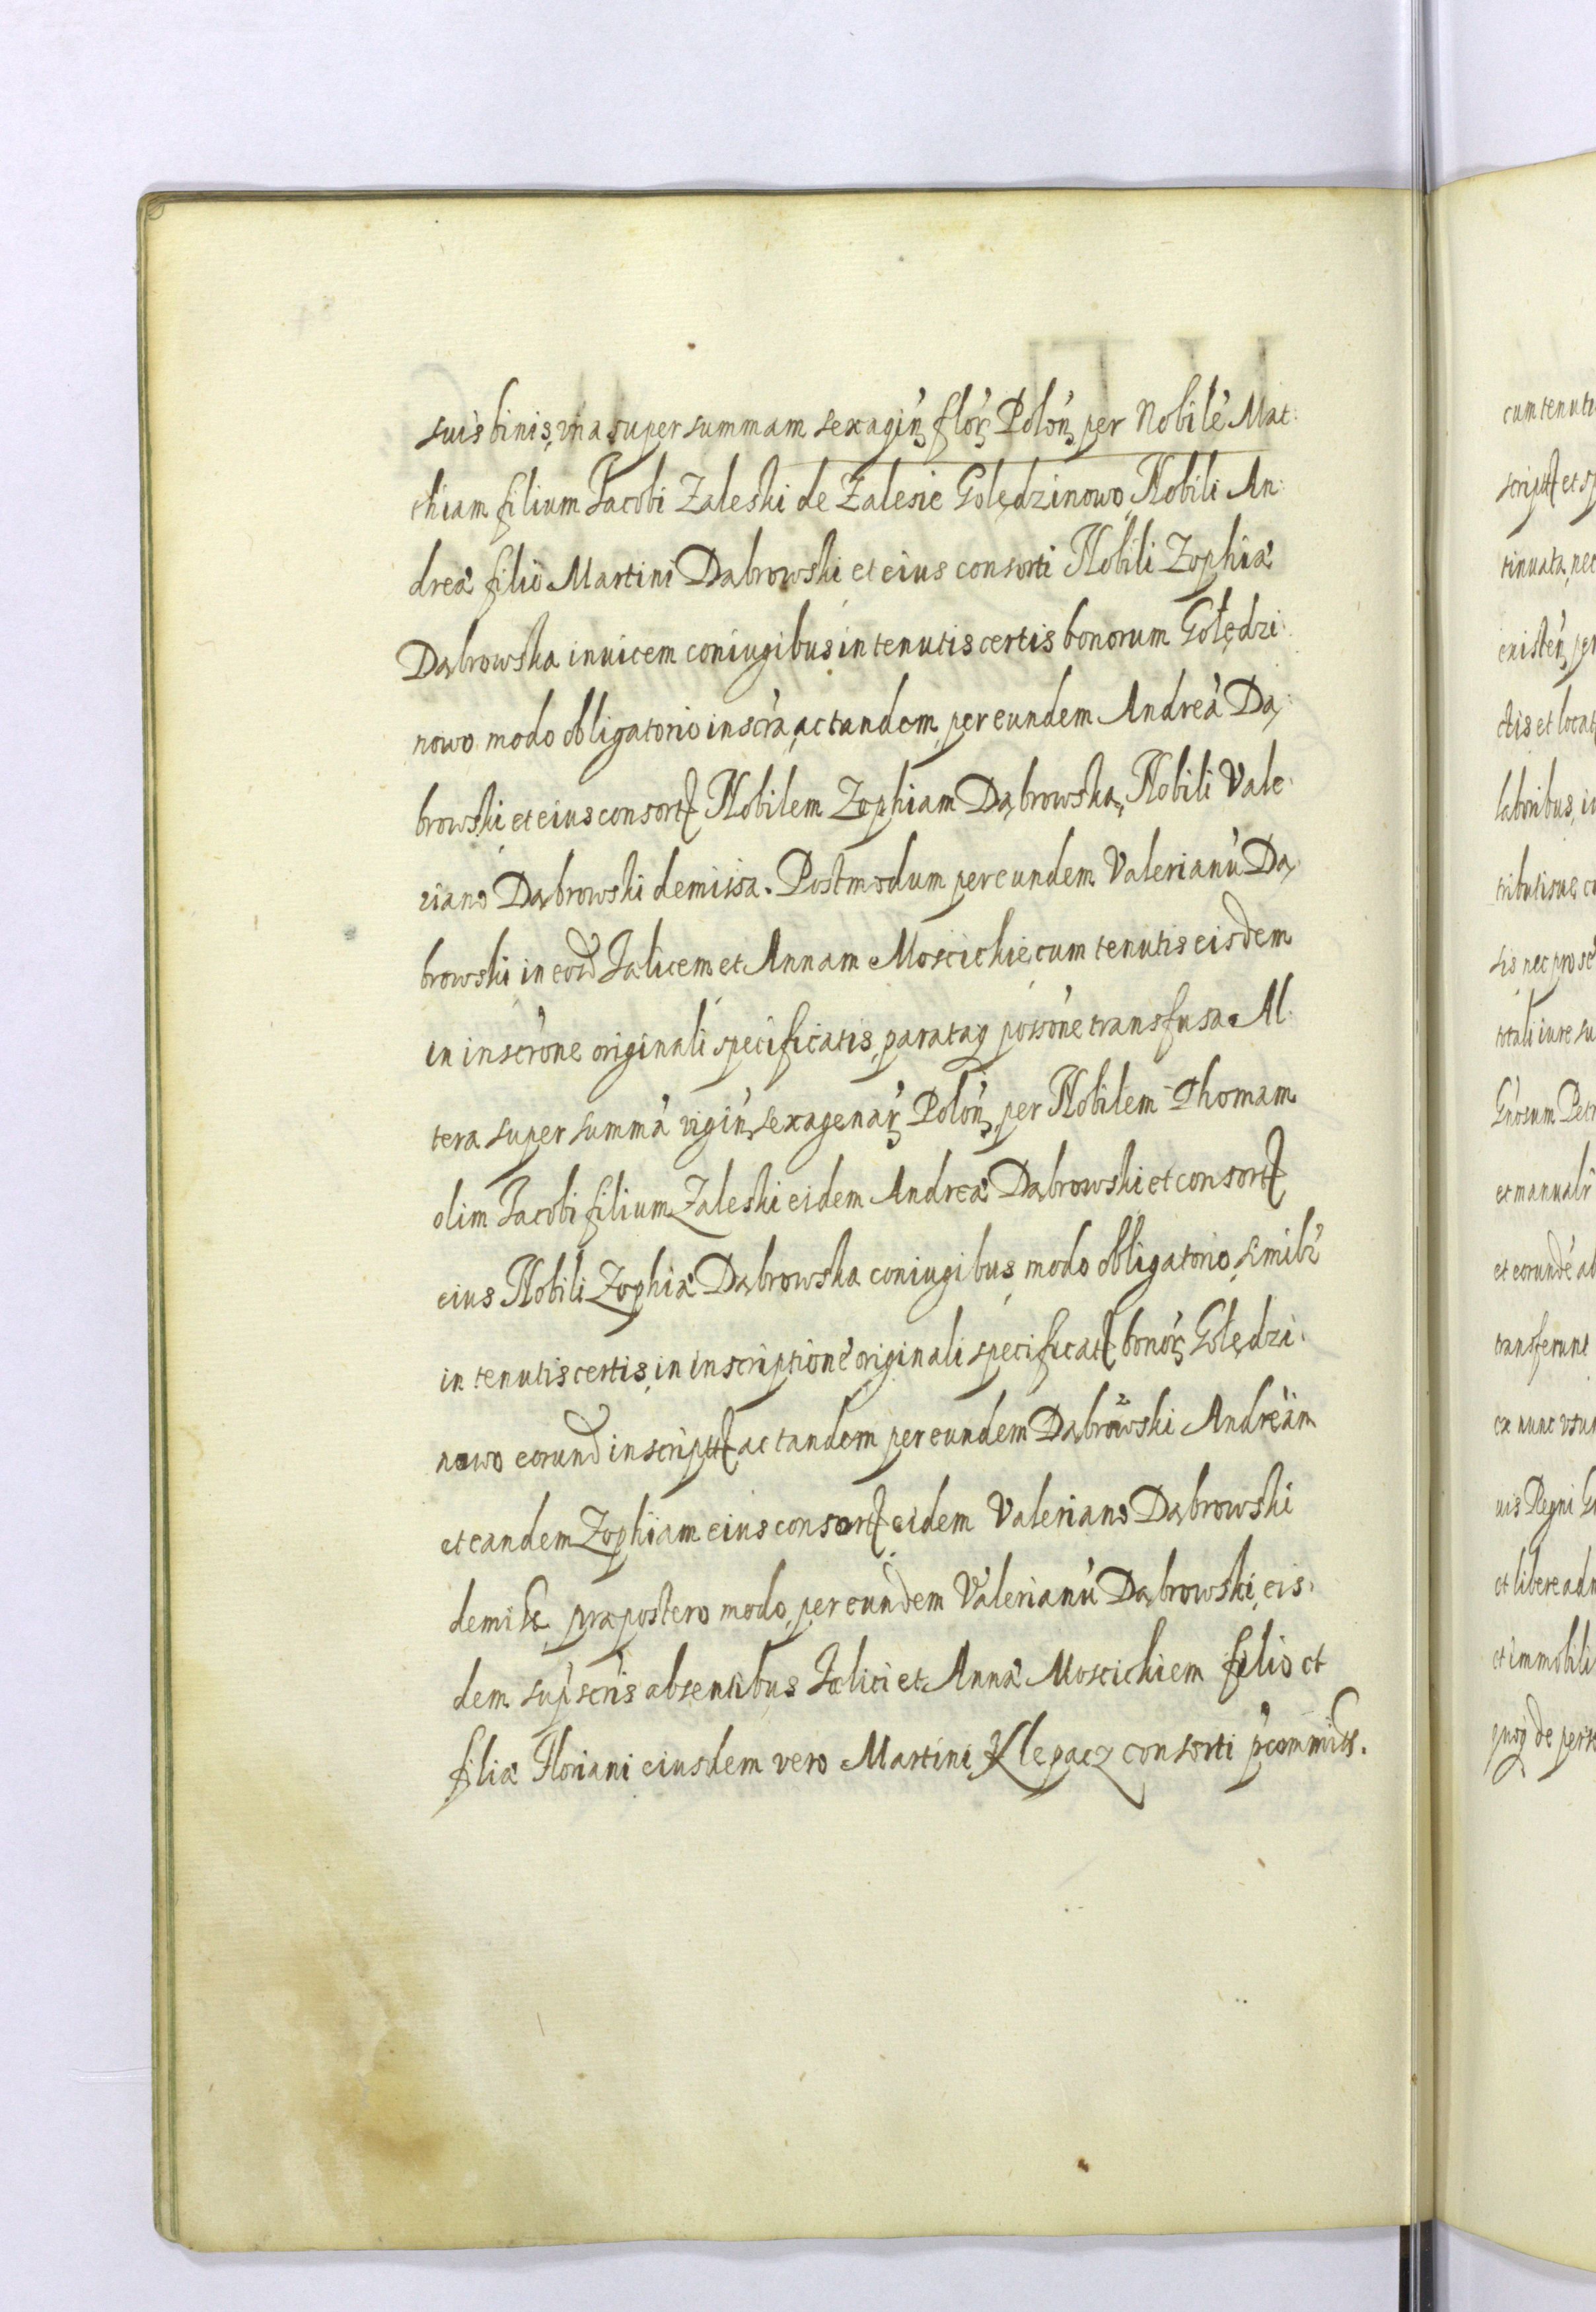 suis binis, vna super summam sexagin. flor. Polon. per Nobilé Mat:
thiam filium Jacobi Zaleski de Zalesie Golędzinowo, Nobili An:
dreæ filio Martini Dąbrowski et eius consorti Nobili Zophiæ
Dąbrowska inuicem coniugibus in tenutis certis bonorum Golędzi:
nowo modo obligatorio inscra, ac tandem per eundem Andreā Dą:
browski et eius consort Nobilem Zophiam Dąbrowska, Nobili Vale:
riano Dąbrowski demissa. Postmodum per eundem Valerianū Dą
browski in eosd Falicem et Annam Moscickie cum tenutis eisdem
in inscrone originali specificatis, parataq possone transfusa. Al:
tera super summā vigin. sexagenar. Polon. per Nobilem Thomam
olim Jacobi filium Zaleski eidem Andreæ Dąbrowski et consort
eius Nobili Zophiæ Dąbrowska coniugibus modo obligatorio simibr
in tenutis certis, in inscriptione originali specificat bonor. Golędzi:
nowo eorund inscript ac tandem per eundem Dąbrowski Andream
et eandem Zophiam eius consort eidem Valeriano Dąbrowski
demissæ præpostero modo, per eundem Valerianū Dąbrowski, eis:
dem supscris absentibus Falici et Annæ Moscickiem filio et
filiæ Floriani eiusdem vero Martini Klepacz consorti
cum tenuti
script et sp
tinuata, nec
existen. per
ctis et locat
laboribus, in
tributisue c
sis nec pro
totali iure su
Gnosum Petr
et manualr
et eorundé ad
transferunt
ex nunc vsum
uis Regni G
et libere adm
et immobili
quoq de per